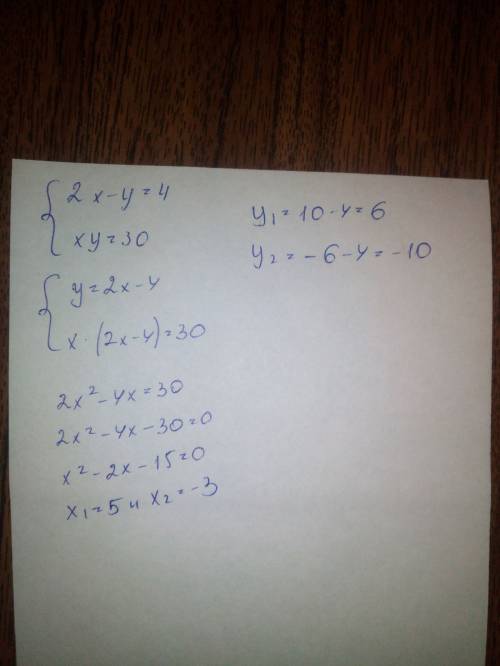 2x-y=4
xy=30
y=2x-4
x·(2x-4)=30
2x²-4x=30
2x²-4x-30=0
x²-2x-15=0
x₁=5 и x₂=-3
y₁=10-4=6
y₂=-6-4=-10